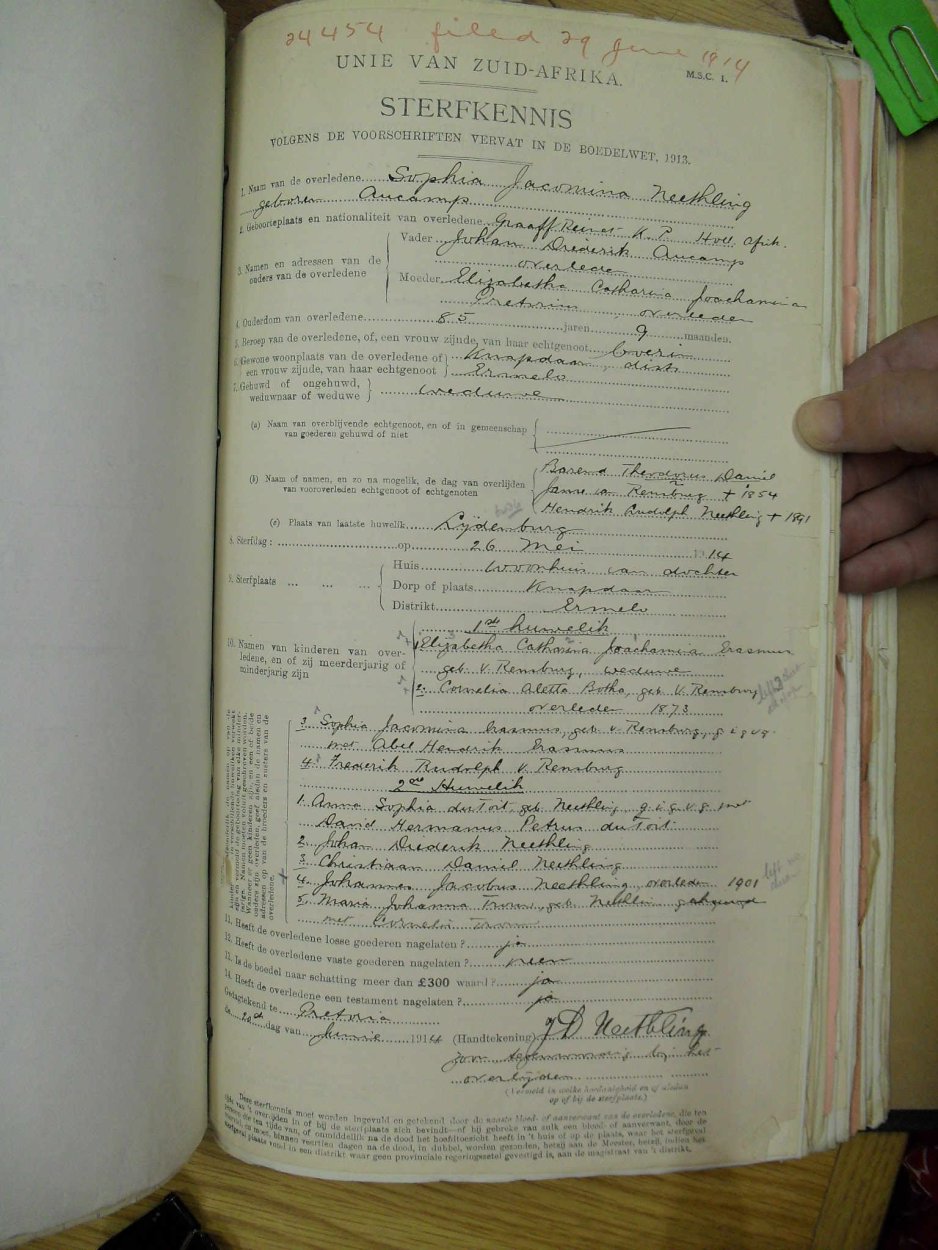 24454 filed 29 June 1914
UNIE VAN ZUID-AFRIKA.
M.S.C. 1.
STERFKENNIS
VOLGENS DE VOORSCHRIFTEN VERVAT IN DE BOEDELWET, 1913.
1. Naam van de overledene Sophia Jacomina Neethling
geboren Aucamp
2. Geboorteplaats en nationaliteit van overledene Graaff Reinet K. P. Holl. Afrik.
3. Namen en adressen van de ouders van de overledene
Vader Johan Diederik Aucamp
overleden
Moeder Elizabetha Catharina Joachamina
Pretorius overleden
4. Ouderdom van overledene 85 jaren 9 maanden.
5. Beroep van de overledene, of, een vrouw zijnde, van haar echtgenoot
6. Gewone woonplaats van de overledene of Knapdaar, dist.
een vrouw zijnde, van haar echtgenoot Ermelo
7. Gehuwd of ongehuwd,
weduwnaar of weduwe weduwe
(a) Naam van overblijvende echtgenoot, en of in gemeenschap
van goederen gehuwd of niet
(b) Naam of namen, en zo na mogelik, de dag van overlijden
van vooroverleden echtgenoot of echtgenoten
Barend Theodorus Daniel
Janse van Rensburg † 1854
Hendrik Rudolph Neethling † 1891
(c) Plaats van laatste huwelik Lydenburg
8. Sterfdag : op 26 Mei 1914
9. Sterfplaats ... ... ...
Huis Woonhuis van dochter
Dorp of plaats Knapdaar
Distrikt Ermelo
10. Namen van kinderen van over-
ledene, en of zij meerderjarig of
minderjarig zijn
1ste huwelik
Elizabetha Catharina Joachamina Erasmus
geb. v. Rensburg, weduwe
2. Cornelia Aletta Botha, geb. v. Rensburg
overleden 1873
3. Sophia Jacomina Erasmus, geb v Rensburg, g. i. g. v. g.
met Abel Hendrik Erasmus
4. Frederik Rudolph v. Rensburg
2de Huwelik
1. Anna Sophia du Toit, geb. Neethling g. i. g. v. g. met
David Hermanus Petrus du Toit
2. Johan Diederik Neethling
3. Christiaan Daniel Neethling
4. Johannes Jacobus Neethling, overleden 1901
5. Maria Johanna geb. gehuwd
met Cornelis
11. Heeft de overledene losse goederen nagelaten ? ja
12. Heeft de overledene vaste goederen nagelaten ? neen
13. Is de boedel naar schatting meer dan £300 waard ? ja
14. Heeft de overledene een testament nagelaten ? ja
Gedagtekend te Pretoria
de dag van Junie 1914
(Handtekening) J D Neethling
zoon tegenwoordig by het
overlijden
(Vermeld in welke hoedanigheid en of aldan
op of bij de sterfplaats.)
Deze sterfkennis moet worden ingevuld en getekend door de naaste bloed- of aanverwant van de overledene, die ten
tijde van 't overlijden in of bij de sterfplaats zich bevindt—of bij gebreke van zulk een bloed- of aanverwant, door de